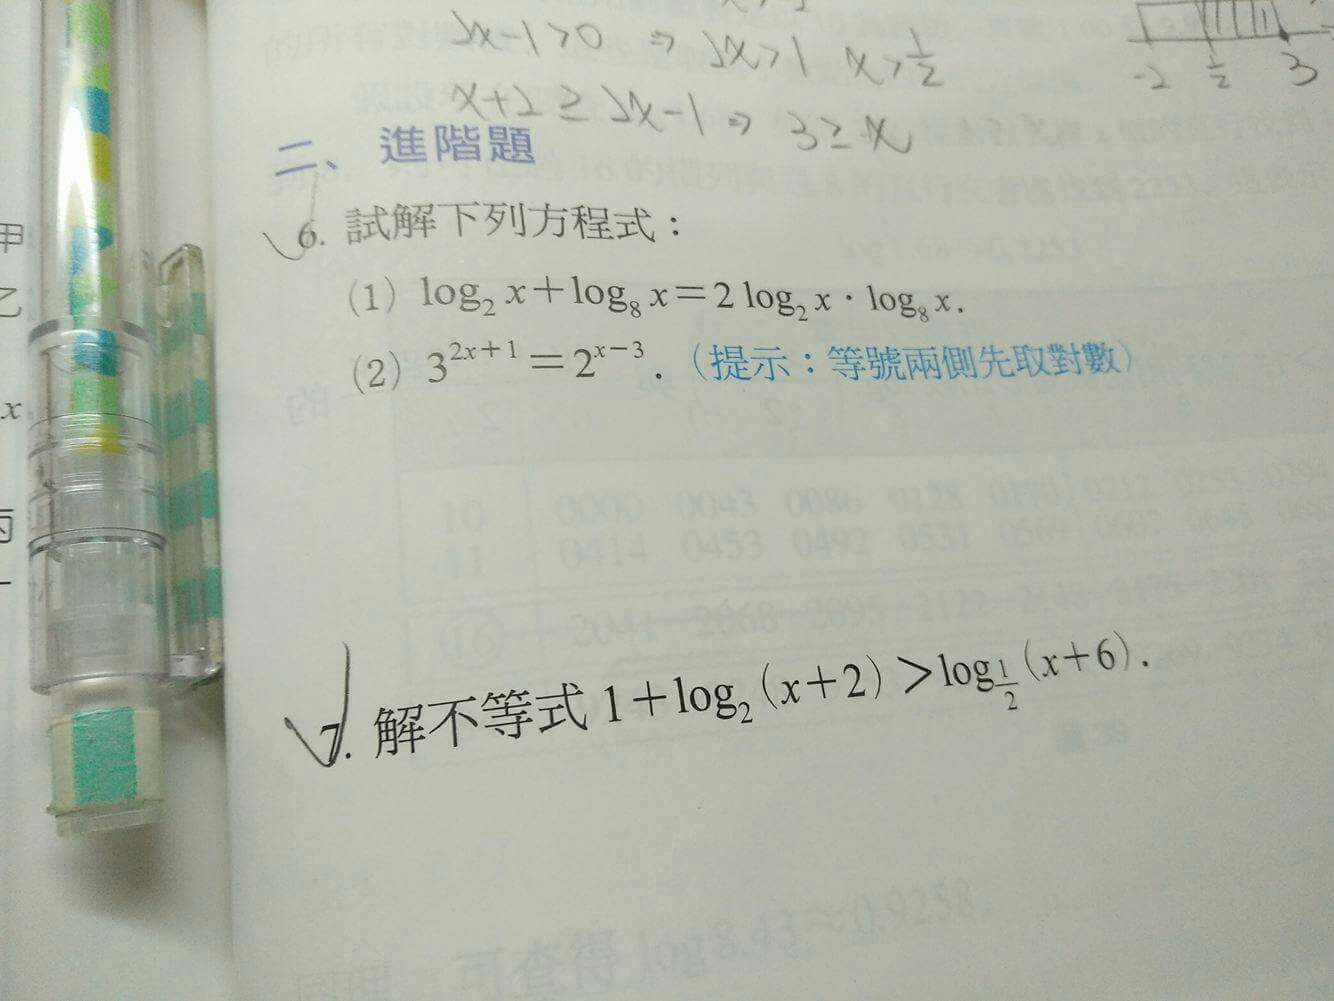 2x-1>0 ⇒ 2x>1 x>1/2
-2 1/2 3
x+2 ≥ 2x-1 ⇒ 3≥x
二、進階題
6. 試解下列方程式：
(1) log₂ x＋log₈ x＝2 log₂ x · log₈ x.
(2) 3²ˣ⁺¹＝2ˣ⁻³.（提示：等號兩側先取對數）
7. 解不等式 1＋log₂（x＋2）＞log_{1/2}（x＋6）.
甲
乙
x
丙